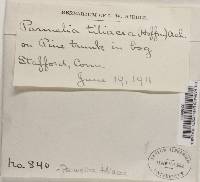 HERBARIUM OF G. W. AIDICH.
Parmelia tiliacea (Hoffm) Ach.
on Pine trunk in bog
Stafford, Conn.
June 19, 1911
no 840
Parmelia tiliacea